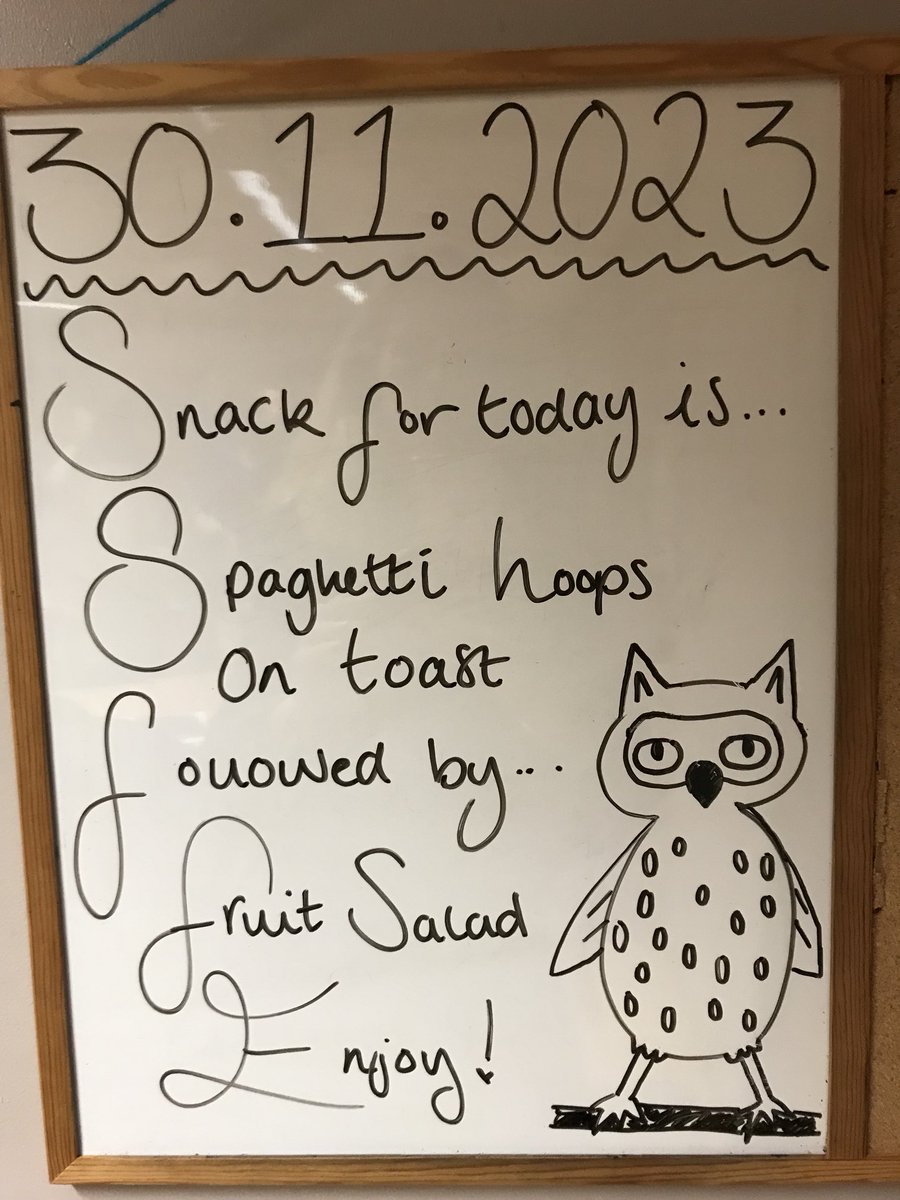 30.11.2023
Snack for today is...
Spaghetti hoops
On toast
followed by...
fruit Salad
Enjoy!